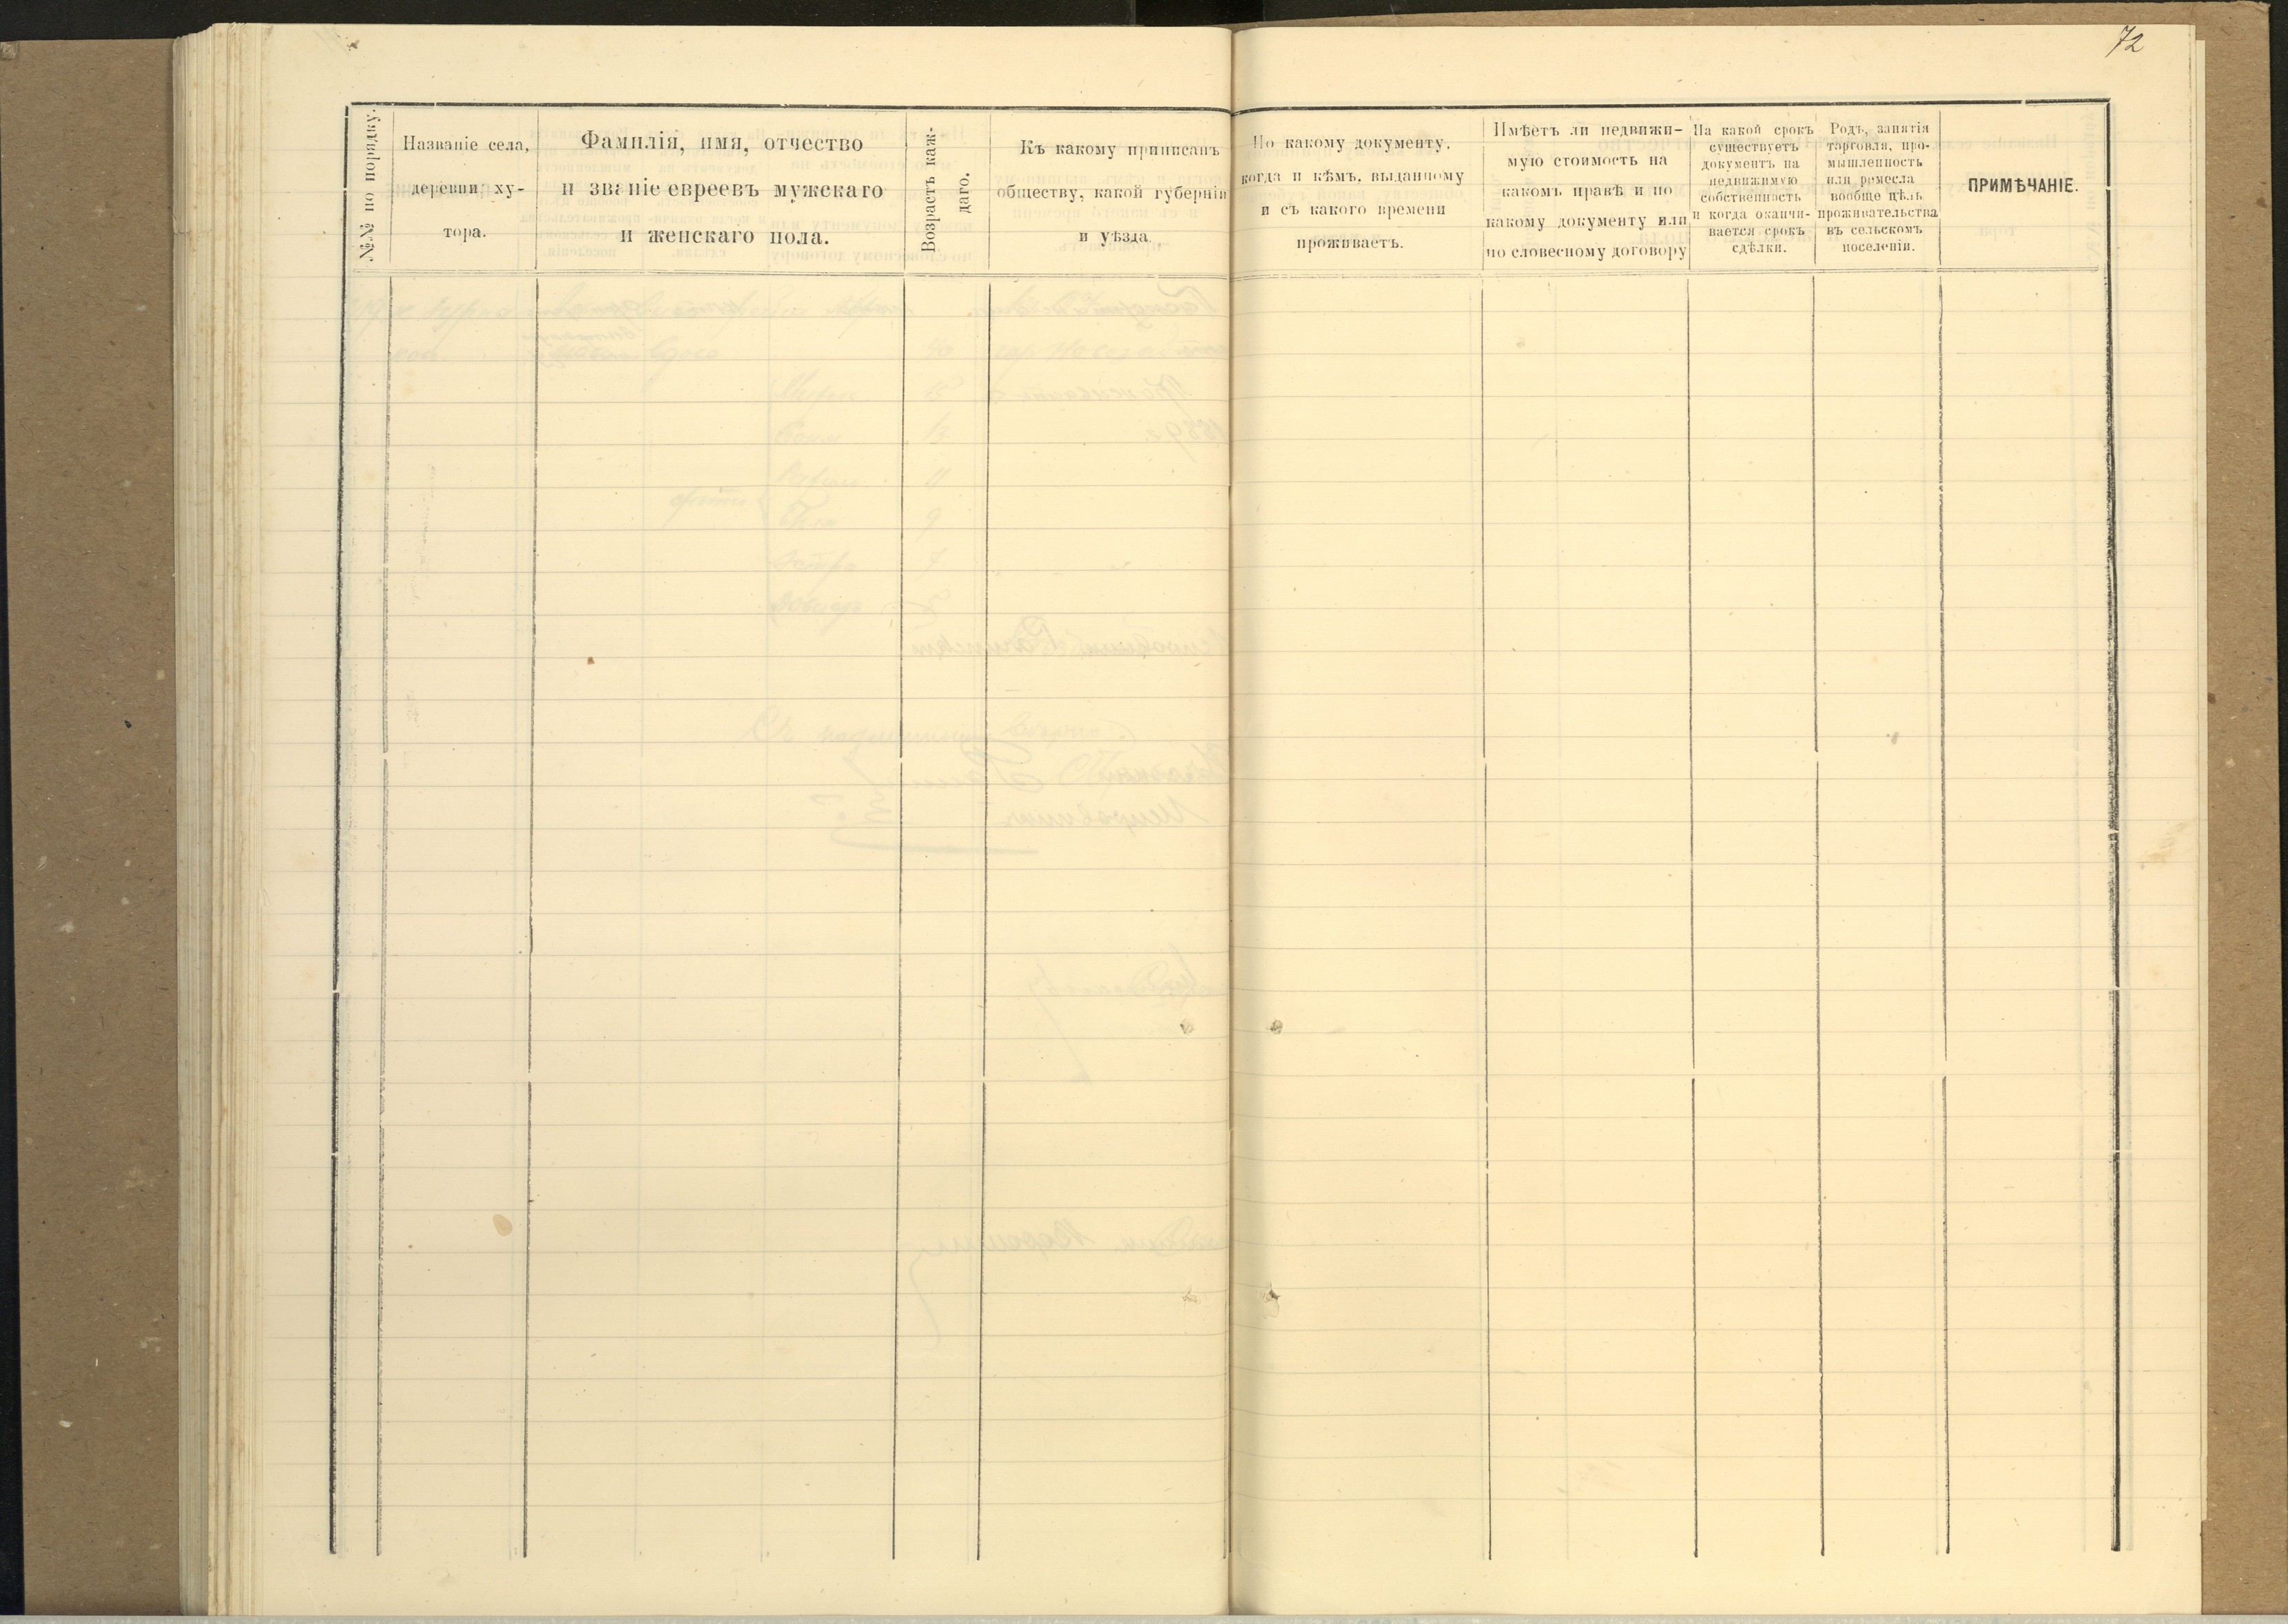 72
№№ по порядку.
Названіе села,
деревни ху-
тора.
Фамилія, имя, отчество
и званіе евреевъ мужскаго
и женскаго пола.
Возрастъ каж-
даго.
Къ какому приписанъ
обществу, какой губерніи
и уѣзда
По какому документу.
когда и кѣмъ, выданному
и съ какого времени
проживаетъ.
Имѣетъ ли недвижи-
мую стоимость на
какомъ правѣ и по
какому документу или
по словесному договору
На какой срокъ
существуетъ
документъ на
недвижимую
собственность
и когда оканчи-
вается срокъ
сдѣлки.
Родъ, занятія
тарговля, про-
мышленность
или ремесла
вообще цѣль
проживательства
въ сельскомъ
поселеніи.
ПРИМѢЧАНІЕ.